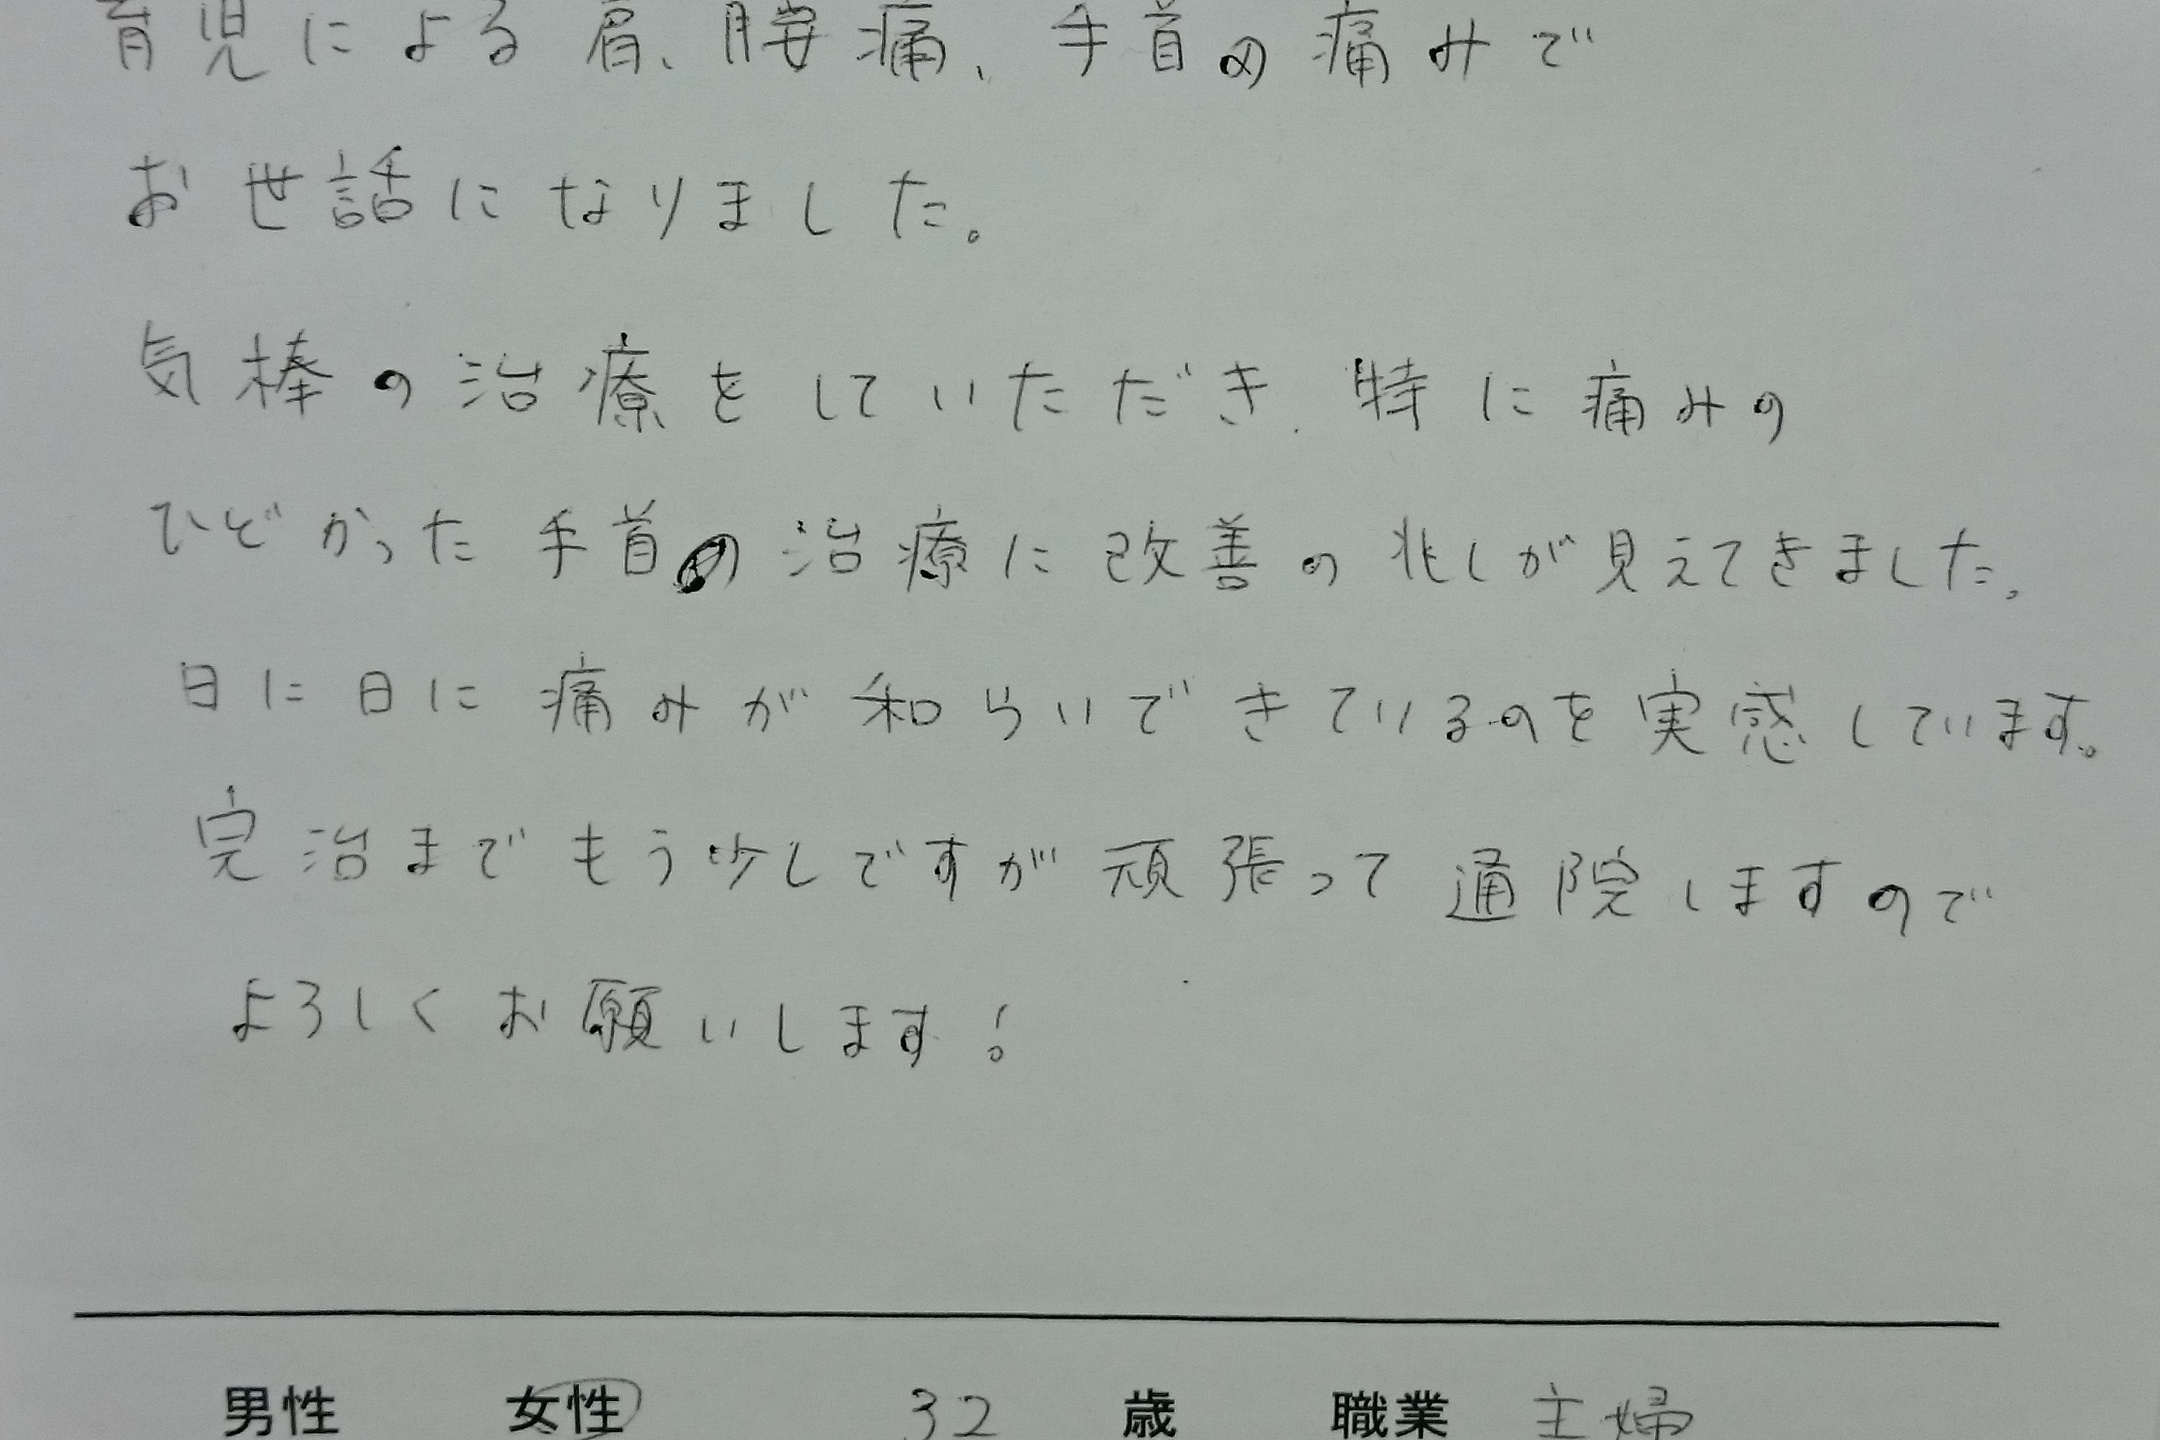 育児による肩、腰痛、手首の痛みで
お世話になりました。
気棒の治療をしていただき、特に痛みの
ひどかった手首の治療に改善の兆しが見えてきました。
日に日に痛みが和らいできているのを実感しています。
完治までもう少しですが頑張って通院しますので
よろしくお願いします!
男性 女性 32 歳 職業 主婦